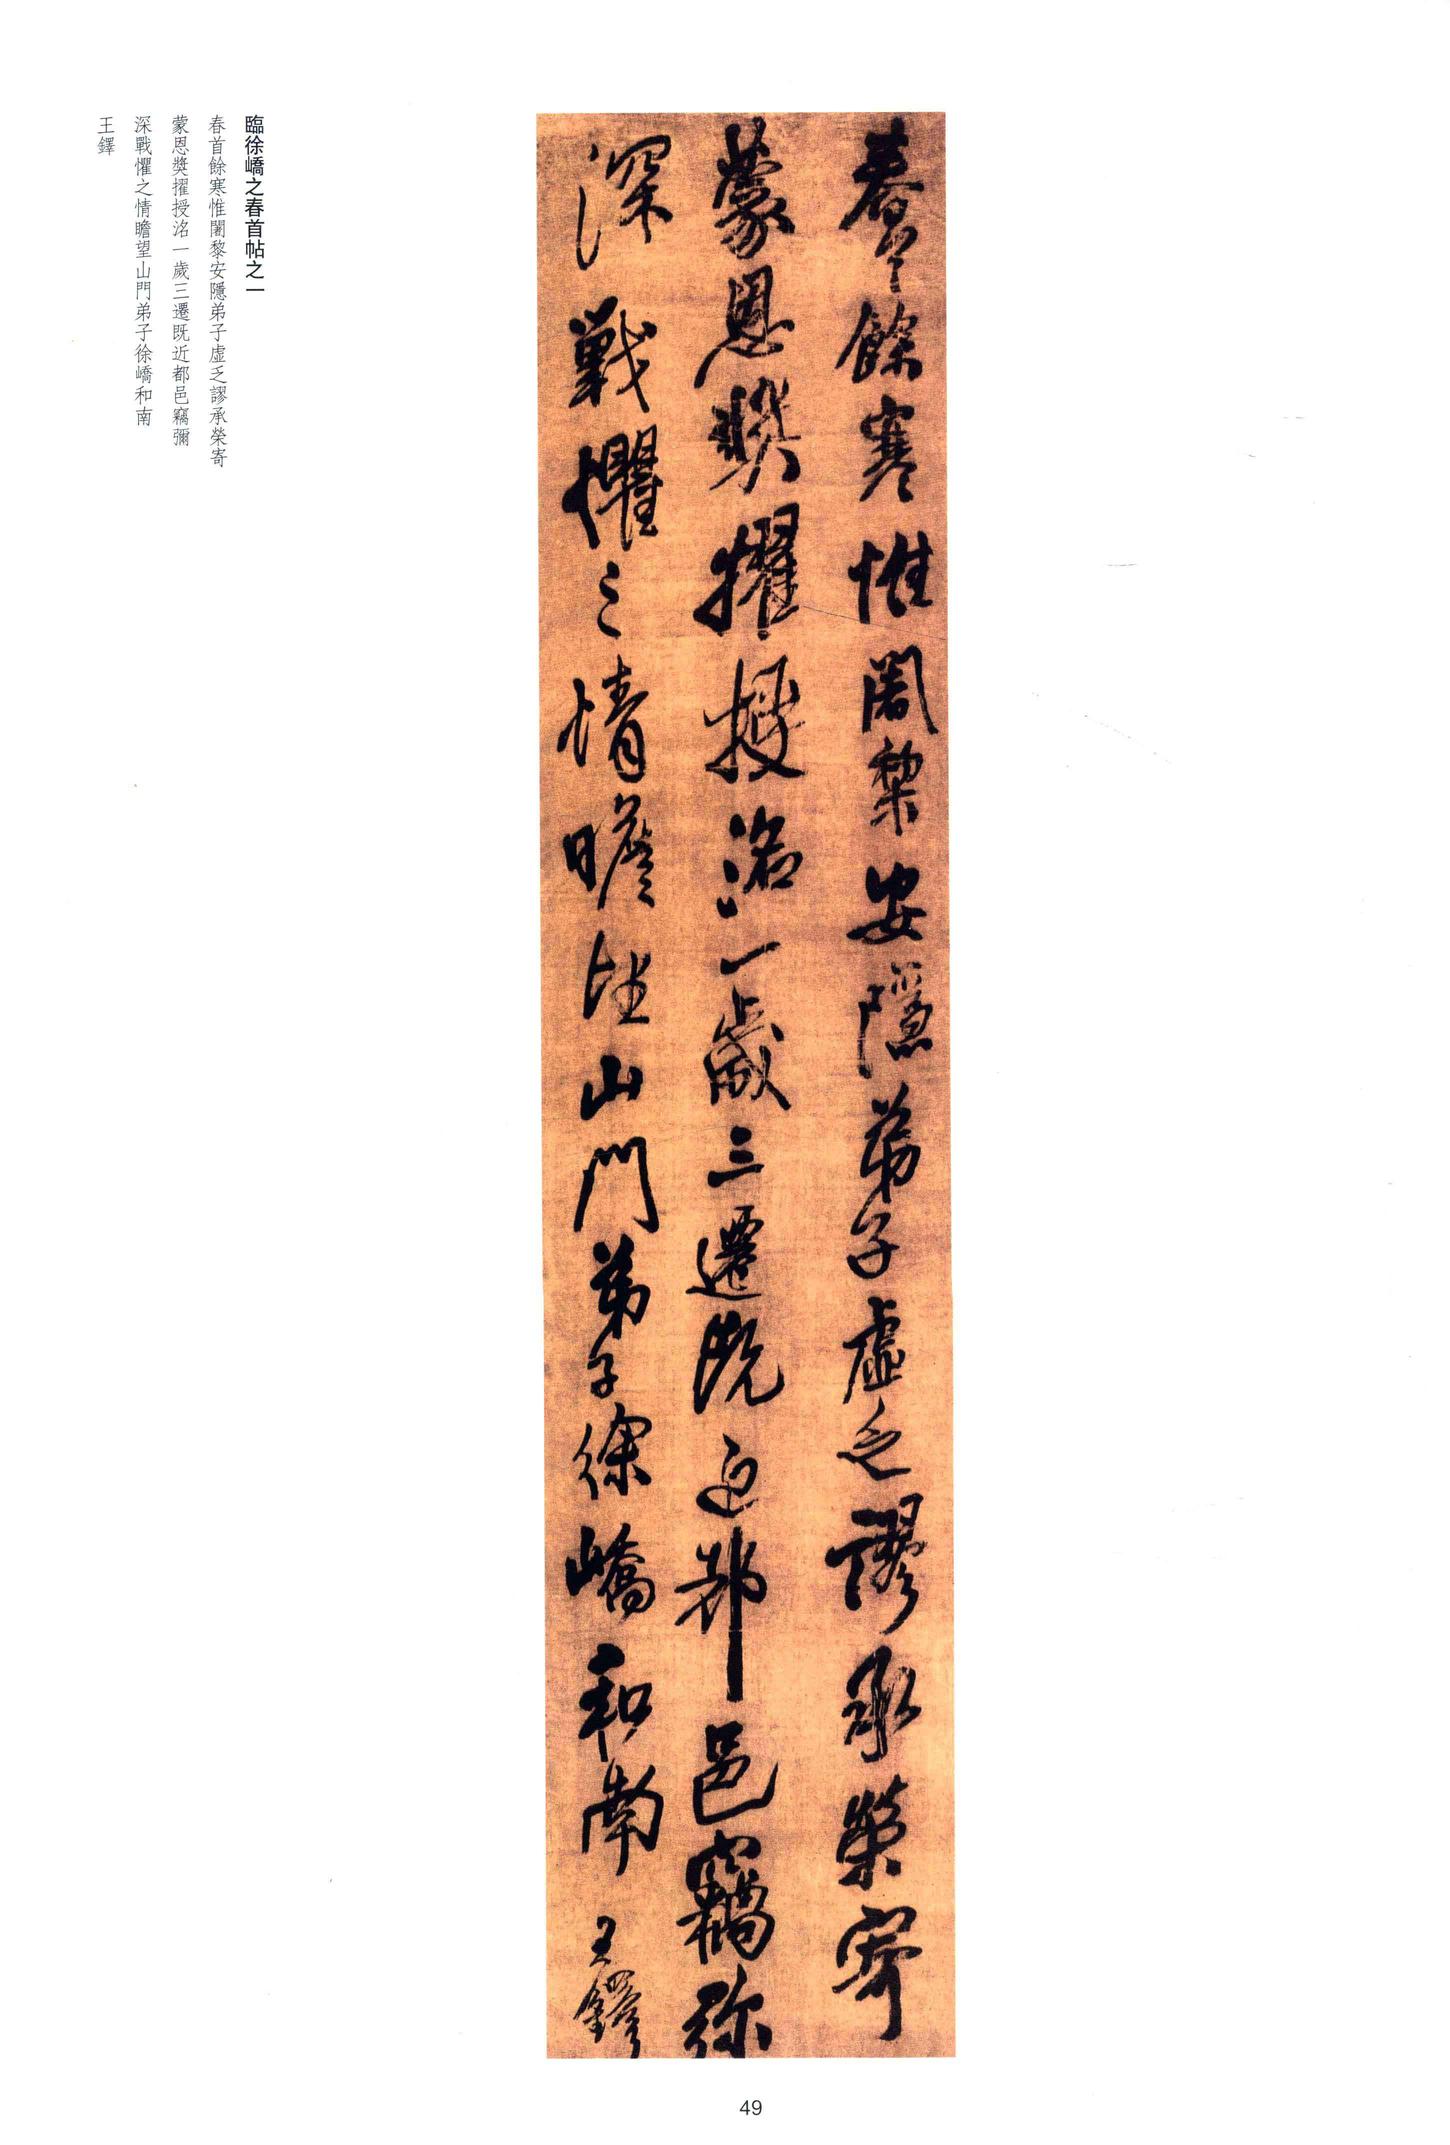 臨徐嶠之春首帖之一
春首餘寒惟闍黎安隱弟子虛乏謬承榮寄
蒙恩獎擢授洺一歲三遷既近都邑竊彌
深戰懼之情瞻望山門弟子徐嶠和南
王鐸
春首餘寒惟闍黎安隱弟子虛乏謬承榮寄
蒙恩獎擢授洺一歲三遷既近都邑竊弥
深戰懼之情瞻望山門弟子徐嶠和南 王鐸
49